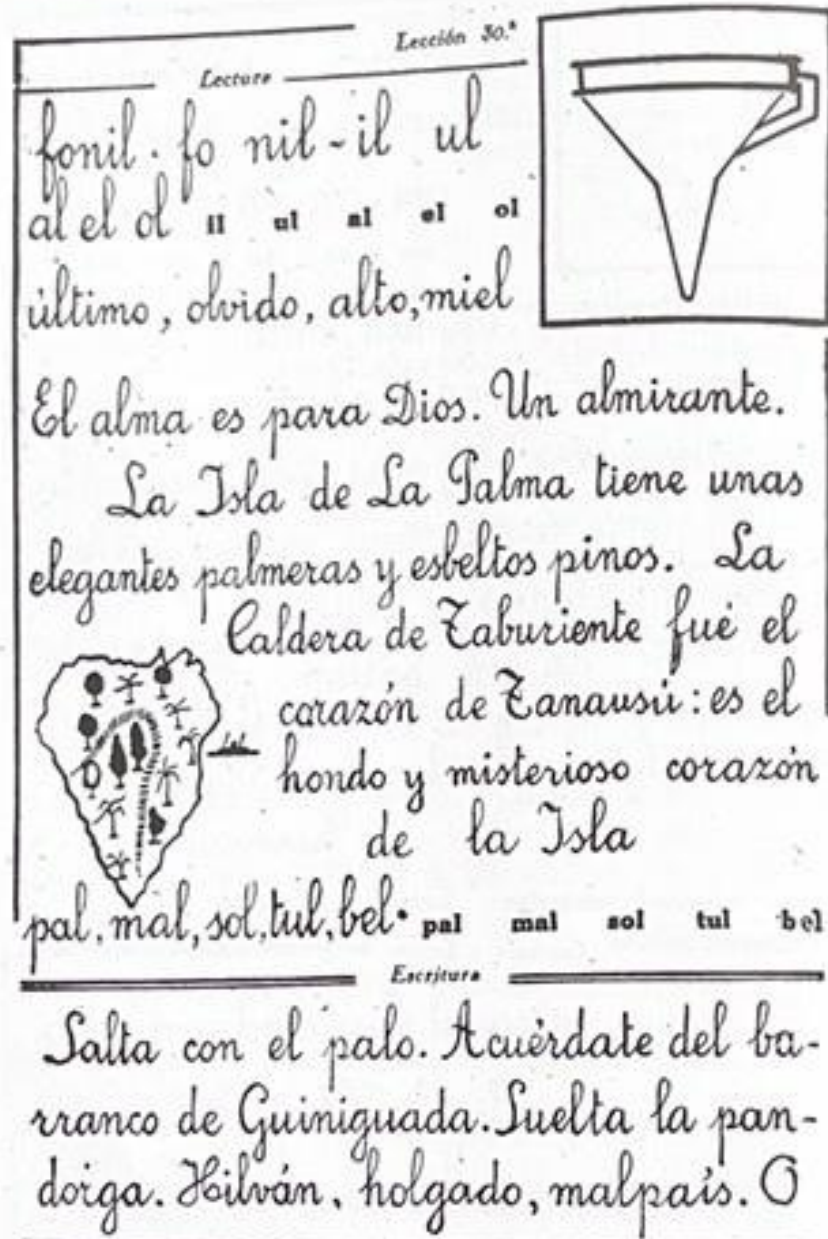 Lección 30.ª
Lectura
fonil · fo nil - il ul
al el ol il ul al el ol
último, olvido, alto, miel
El alma es para Dios. Un almirante.
La Isla de La Palma tiene unas
elegantes palmeras y esbeltos pinos. La
Caldera de Taburiente fué el
corazón de Tanausú: es el
hondo y misterioso corazón
de la Isla
pal, mal, sol, tul, bel · pal mal sol tul bel
Escritura
Salta con el palo. Acuérdate del ba-
rranco de Guiniguada. Suelta la pan-
dorga. Hilván, holgado, malpaís. O